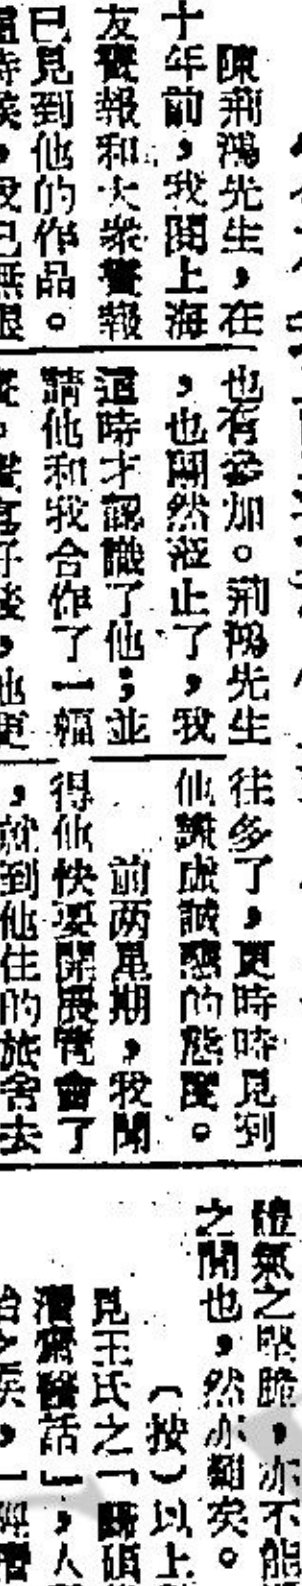 陳荊鴻先生，在
十年前，我閱上海
友聲報和大衆聲報
已見到他的作品。
也有參加。荊鴻先生
，也翩然蒞止了，我
這時才認識了他；並
請他和我合作了一幅
往多了，更時時見到
他謙虛誠懇的態度。
前两星期，我聞
得他快要開展覽會了
，就到他住的旅舍去
體氣之堅脆，亦不能
之間也，然亦僅矣。
（按）以上
見王氏之「歸硯
潛齋醫話」，人